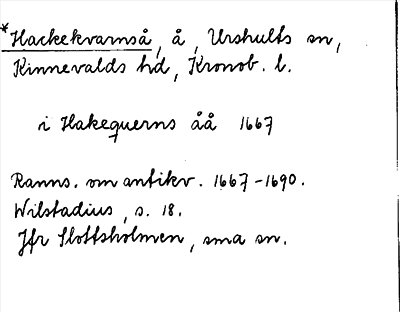 *Hackekvarnså, å, Urshults sn,
Kinnevalds hd, Kronob. l.
i Hakequerns åå 1667
Ranns. om antikv. 1667-1690.
Wilstadius, s. 18.
Jfr Slottsholmen, sma sn.